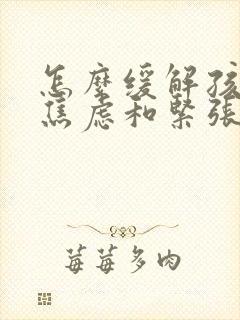 怎麼缓解孩
焦虑和緊張
莓莓多肉